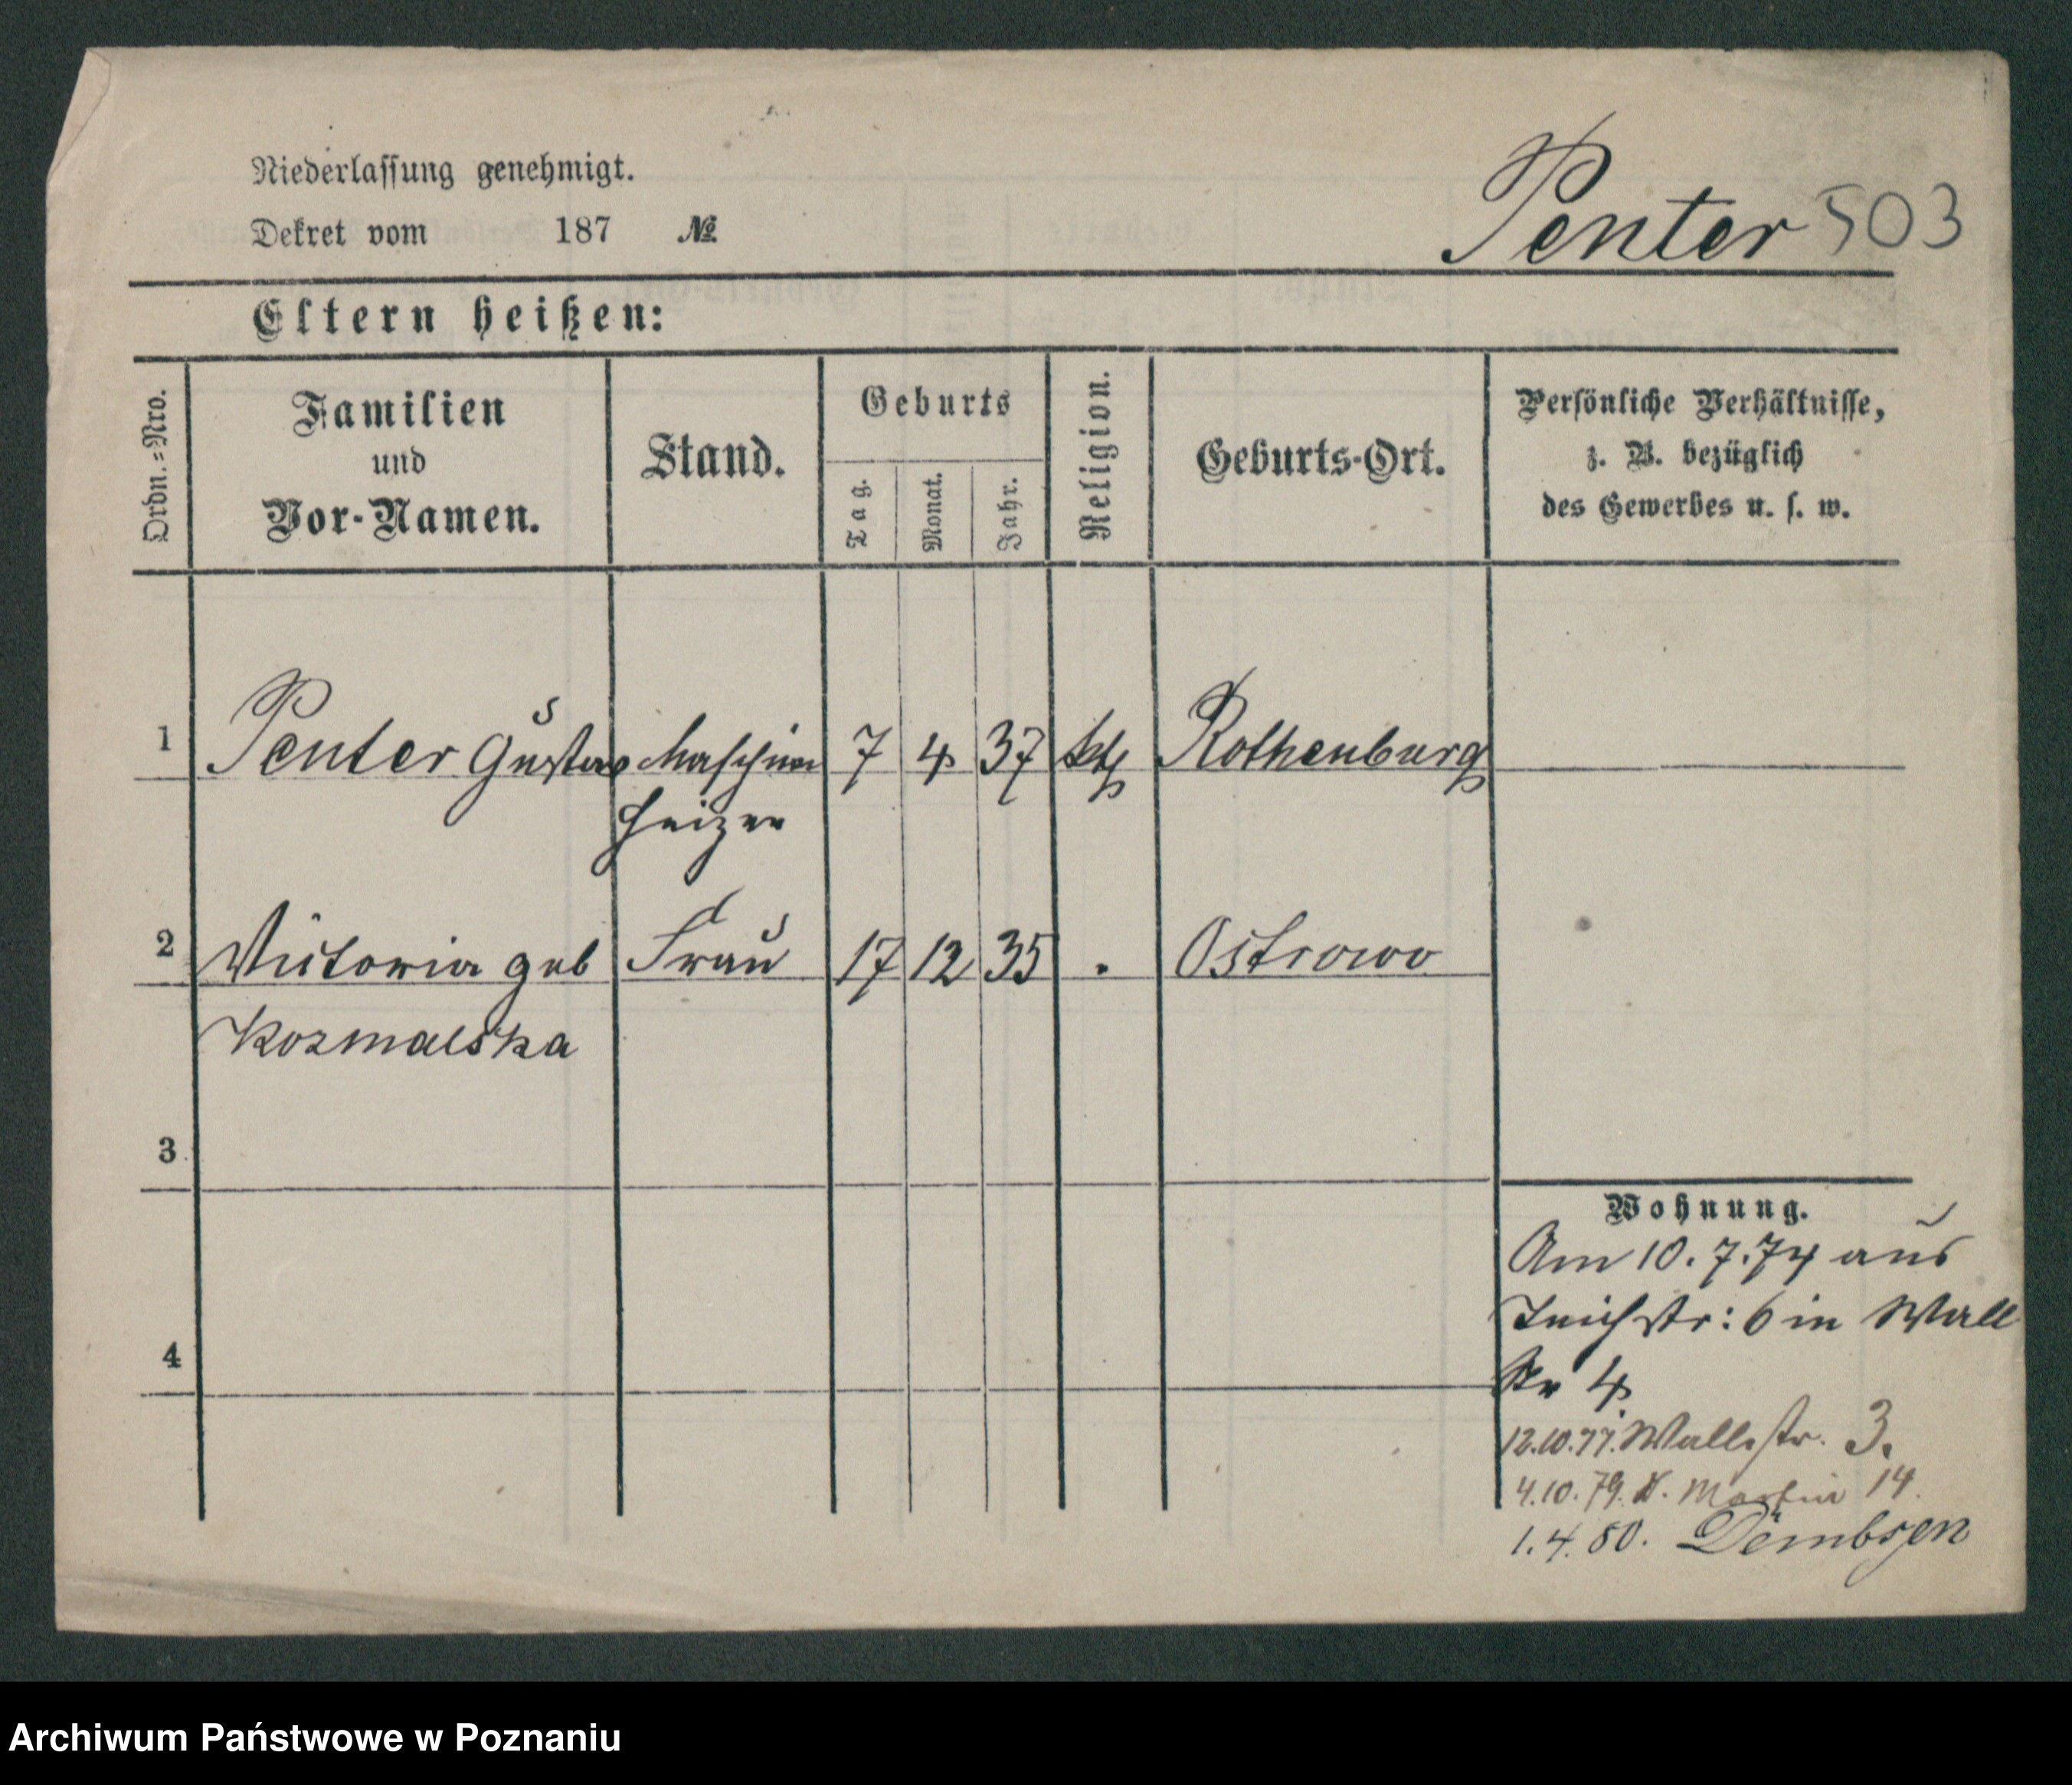 Niederlassung genehmigt.
Dekret vom 187 №
Penter 503
Eltern heißen:
Ordn.=Nro.
Familien
und
Vor-Namen.
Stand.
Geburts
Tag.
Monat.
Jahr.
Religion.
Geburts-Ort.
Persönliche Verhältnisse,
z. B. bezüglich
des Gewerbes u. s. w.
1 Penter Gustav Maschinen 7 4 37 kth Rothenburg
Heizer
2 Victoria geb Frau 17 12 35 . Ostrowo
Kozmalska
3
4
Wohnung.
Am 10.7.74 aus
Teichstr: 6 in Wall
Str 4
12.10.77. Wallstr. 3.
4.10.79. St. Martin 14
1.4.80. Dembsen
Archiwum Państwowe w Poznaniu